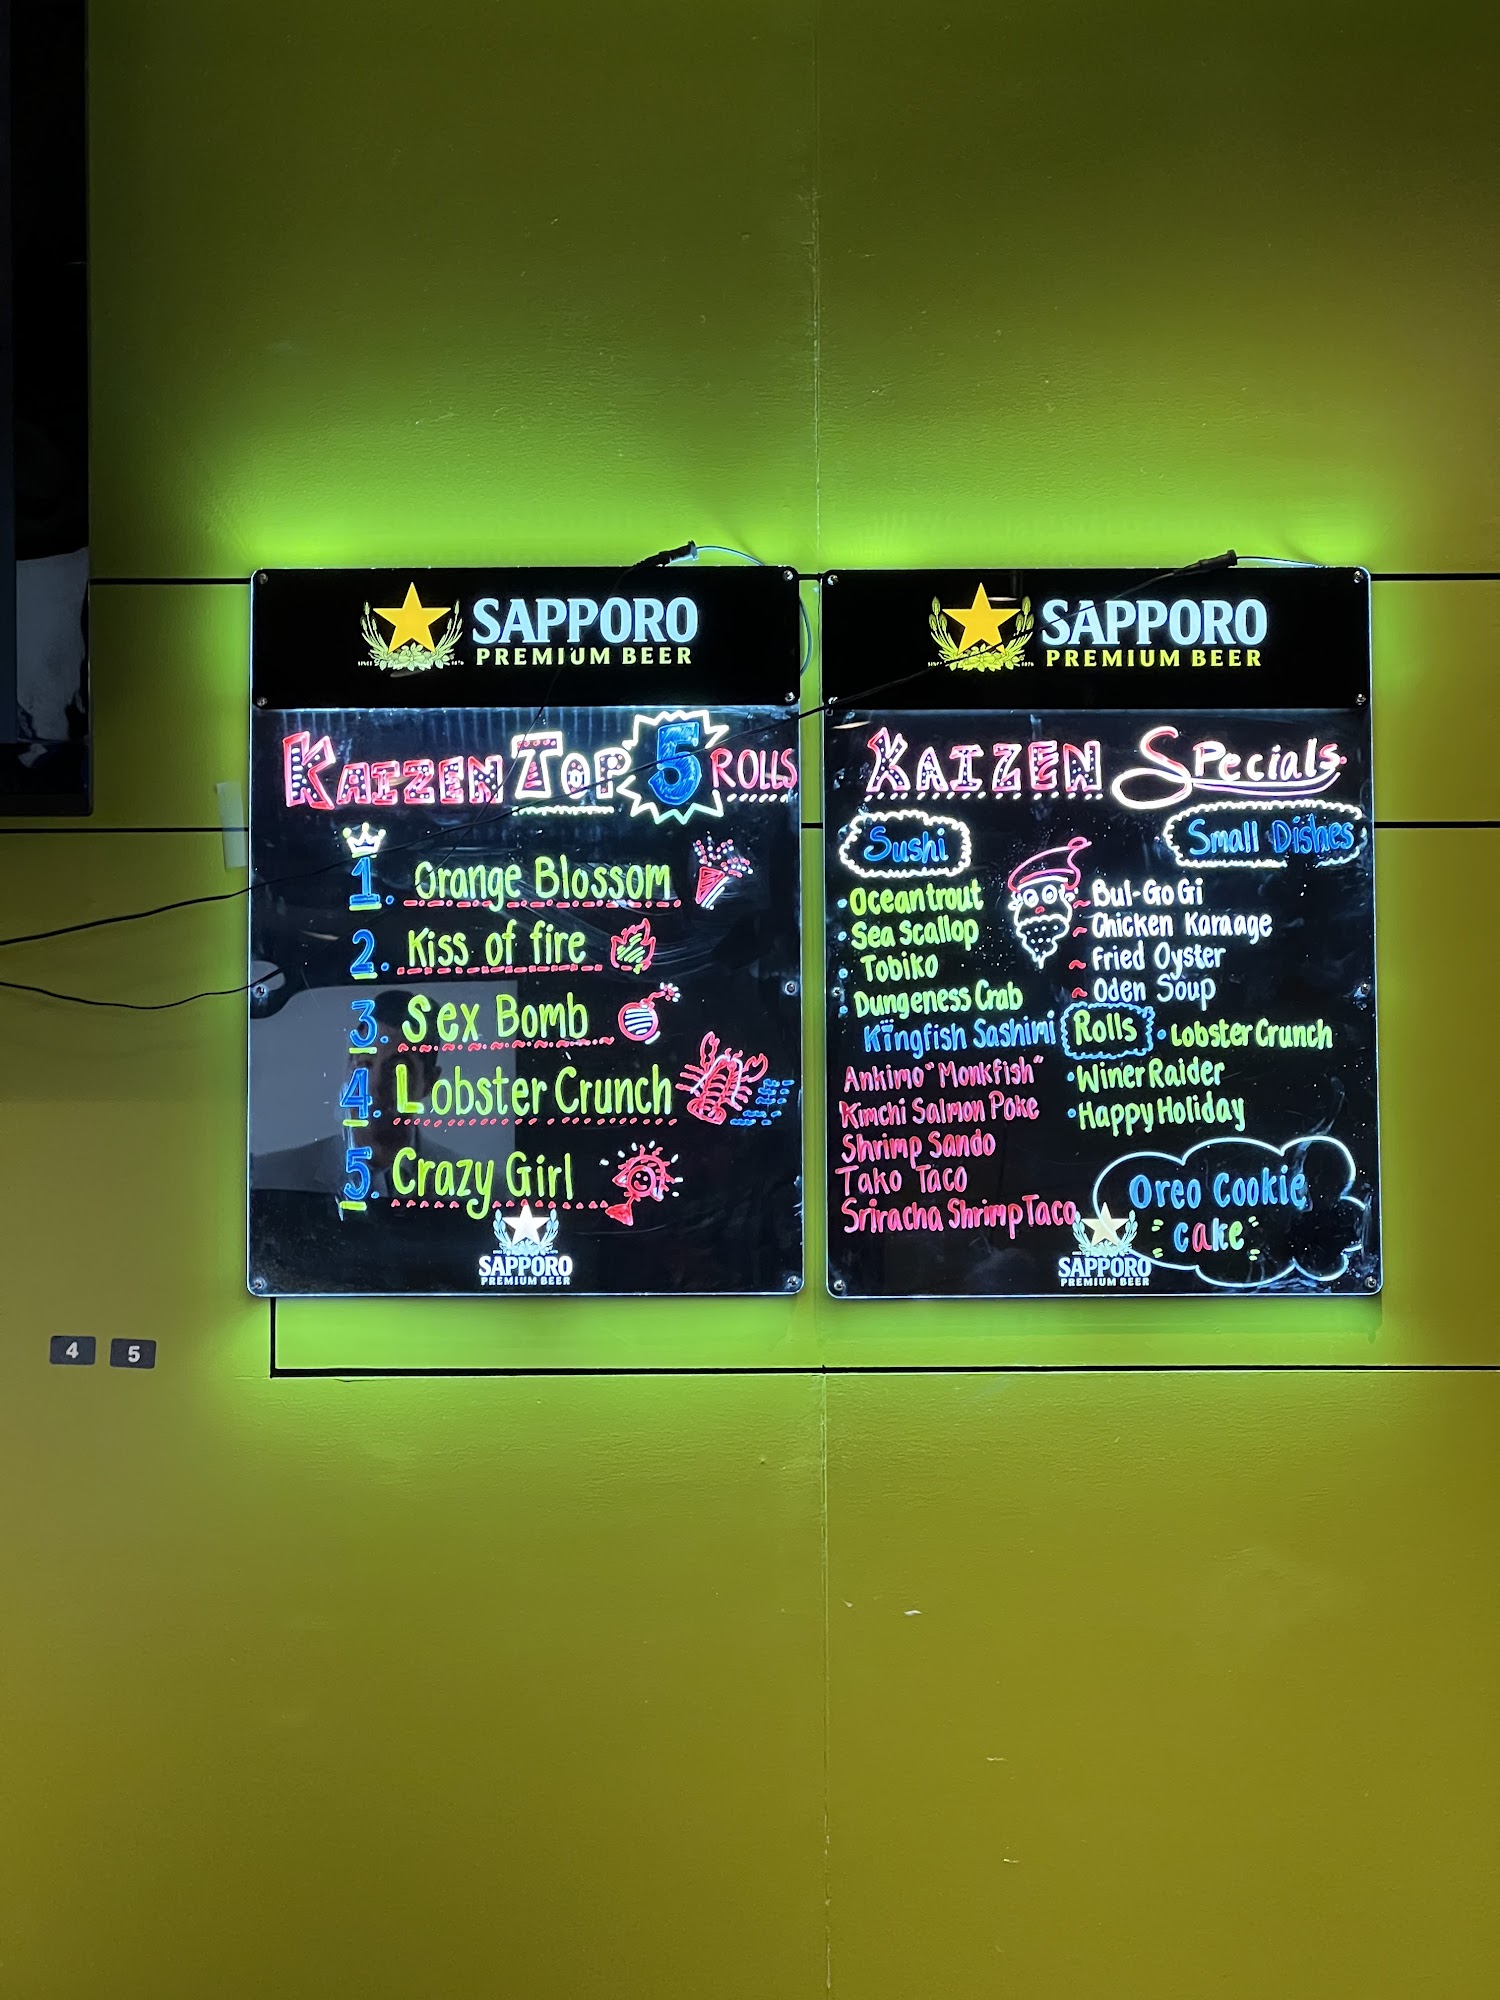 SAPPORO
PREMIUM BEER
KAIZEN TOP 5 ROLLS
1. Orange Blossom
2. Kiss of fire
3. Sex Bomb
4. Lobster Crunch
5. Crazy Girl
SAPPORO
PREMIUM BEER
SAPPORO
PREMIUM BEER
KAIZEN Specials
Sushi
• Ocean trout
• Sea Scallop
• Tobiko
• Dungeness Crab
Kingfish Sashimi
Ankimo "Monkfish"
Kimchi Salmon Poke
Shrimp Sando
Tako Taco
Sriracha Shrimp Taco
Small Dishes
~ Bul-GoGi
~ Chicken Karaage
~ Fried Oyster
~ Oden Soup
Rolls • Lobster Crunch
• Winer Raider
• Happy Holiday
Oreo Cookie
cake
SAPPORO
PREMIUM BEER
4 5